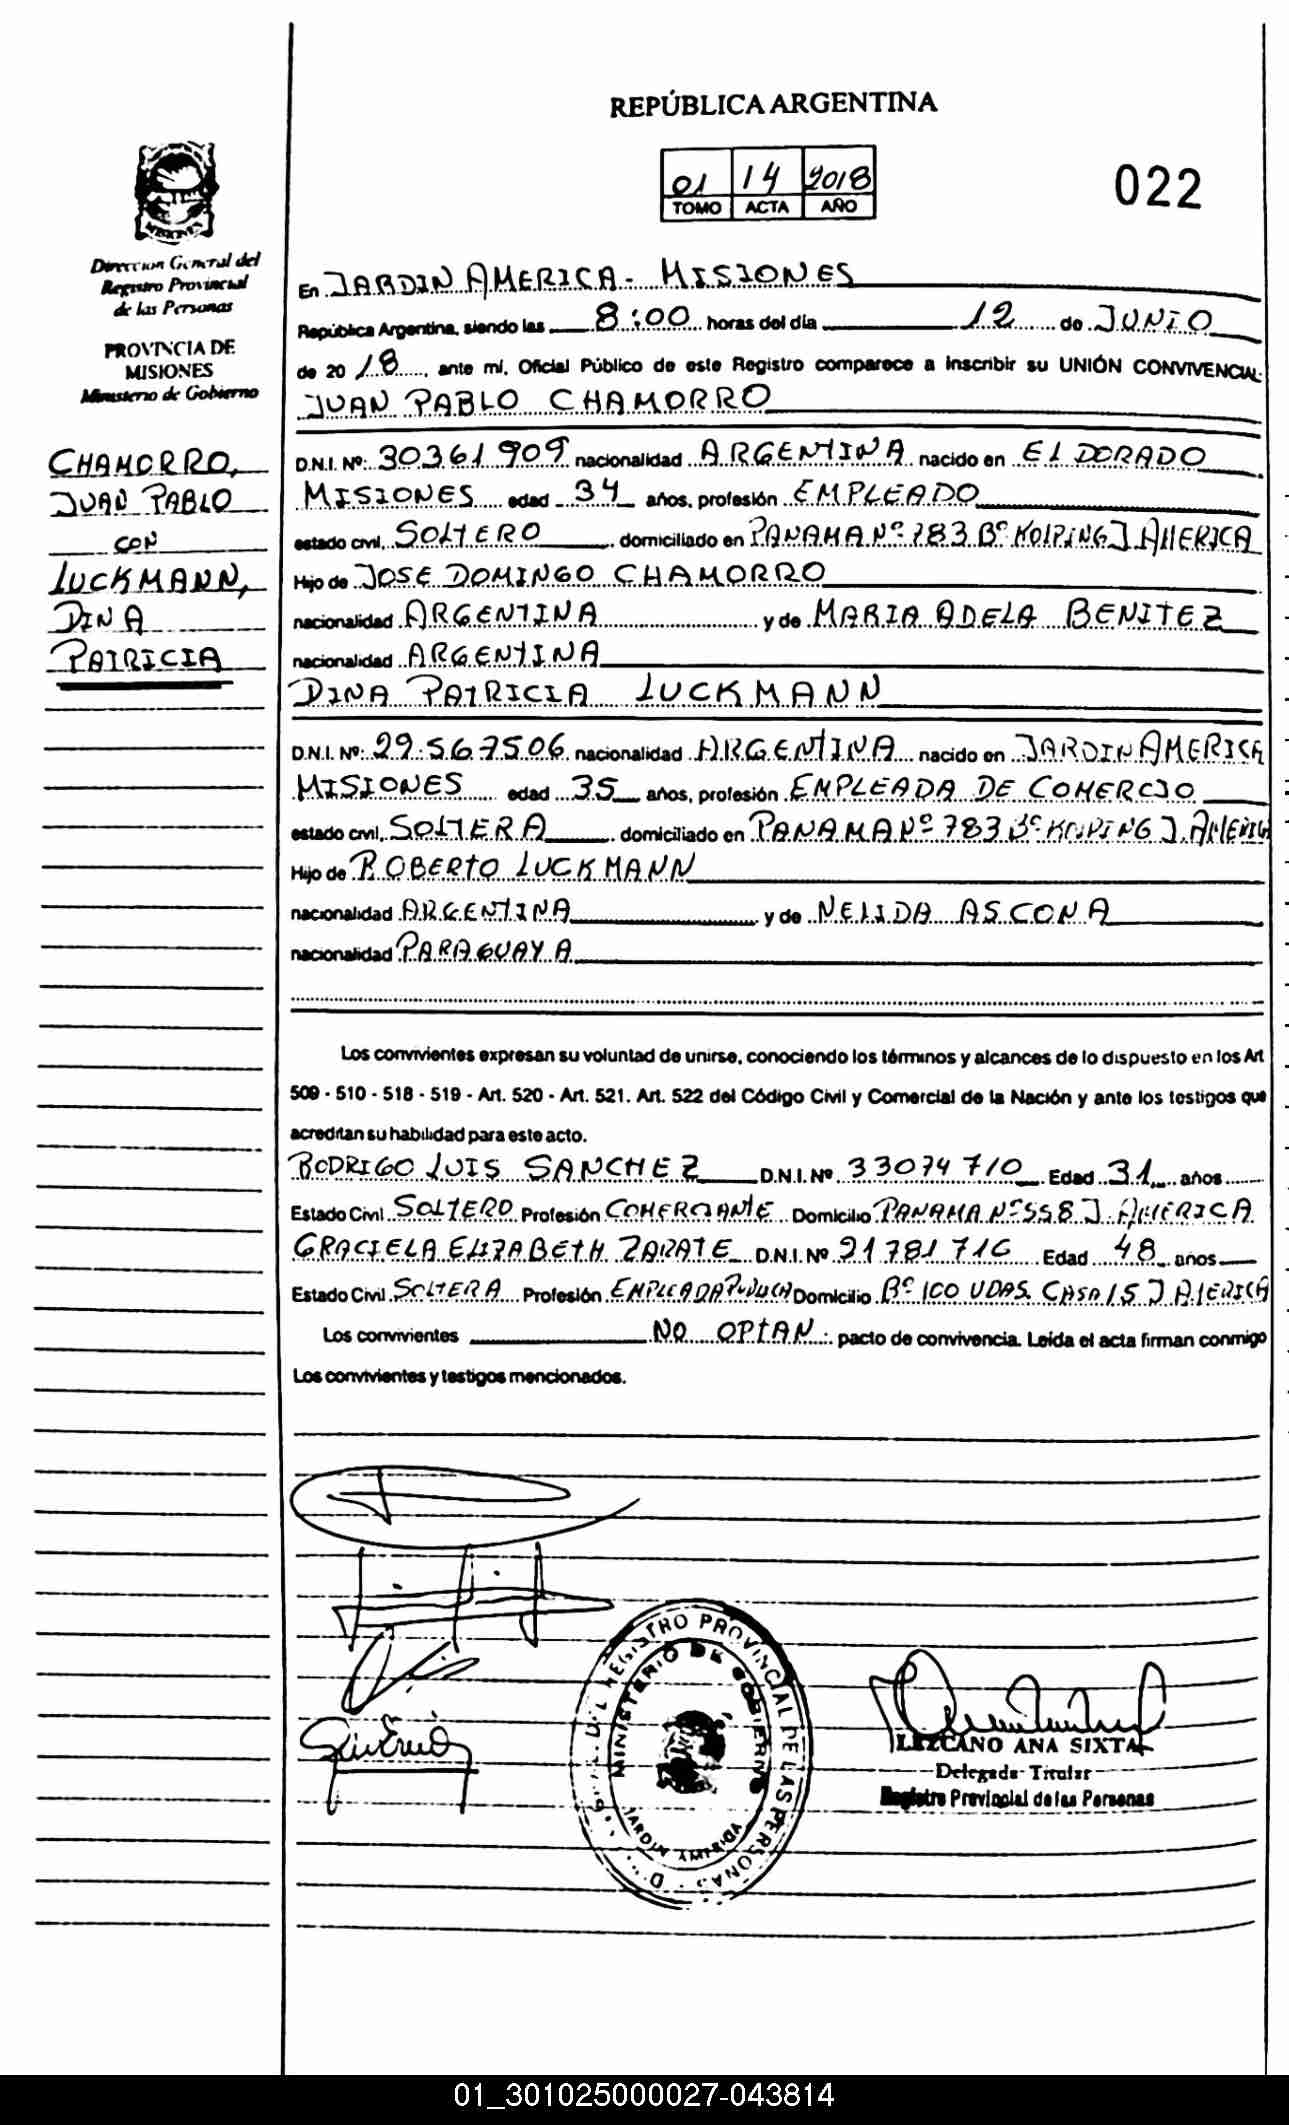 REPÚBLICA ARGENTINA
01 14 2018
TOMO ACTA AÑO
022
MISIONES
Dirección General del
Registro Provincial
de las Personas
PROVINCIA DE
MISIONES
Ministerio de Gobierno
CHAMORRO,
JUAN PABLO
CON
LUCKMANN,
DINA
PATRICIA
En JARDIN AMERICA - MISIONES
República Argentina, siendo las 8:00 horas del día 12 de JUNIO
de 2018, ante mí, Oficial Público de este Registro comparece a inscribir su UNIÓN CONVIVENCIAL:
JUAN PABLO CHAMORRO
D.N.I. Nº: 30361909 nacionalidad ARGENTINA nacido en ELDORADO
MISIONES edad 34 años, profesión EMPLEADO
estado civil, SOLTERO domiciliado en PANAMA Nº 783 Bº KOLPING J AMERICA
Hijo de JOSE DOMINGO CHAMORRO
nacionalidad ARGENTINA y de MARIA ADELA BENITEZ
nacionalidad ARGENTINA
DINA PATRICIA LUCKMANN
D.N.I. Nº: 29.567506 nacionalidad ARGENTINA nacido en JARDIN AMERICA
MISIONES edad 35 años, profesión EMPLEADA DE COMERCIO
estado civil, SOLTERA domiciliado en PANAMA Nº 783 Bº KOLPING J. AMERICA
Hijo de ROBERTO LUCKMANN
nacionalidad ARGENTINA y de NELIDA ASCONA
nacionalidad PARAGUAYA
Los convivientes expresan su voluntad de unirse, conociendo los términos y alcances de lo dispuesto en los Art
509 - 510 - 518 - 519 - Art. 520 - Art. 521. Art. 522 del Código Civil y Comercial de la Nación y ante los testigos que
acreditan su habilidad para este acto.
RODRIGO LUIS SANCHEZ D.N.I. Nº 33074710 Edad 31 años
Estado Civil SOLTERO Profesión COMERCIANTE Domicilio PANAMA Nº 558 J. AMERICA
GRACIELA ELIZABETH ZARATE D.N.I. Nº 21781716 Edad 48 años
Estado Civil SOLTERA Profesión EMPLEADA PUBLICA Domicilio Bº 100 VDAS. CASA 15 J AMERICA
Los convivientes NO OPTAN. pacto de convivencia. Leída el acta firman conmigo
Los convivientes y testigos mencionados.
REGISTRO PROVINCIAL DE LAS PERSONAS
MINISTERIO DE GOBIERNO
JARDIN AMERICA
LEZCANO ANA SIXTA
Delegada Titular
Registro Provincial de las Personas
01_301025000027-043814